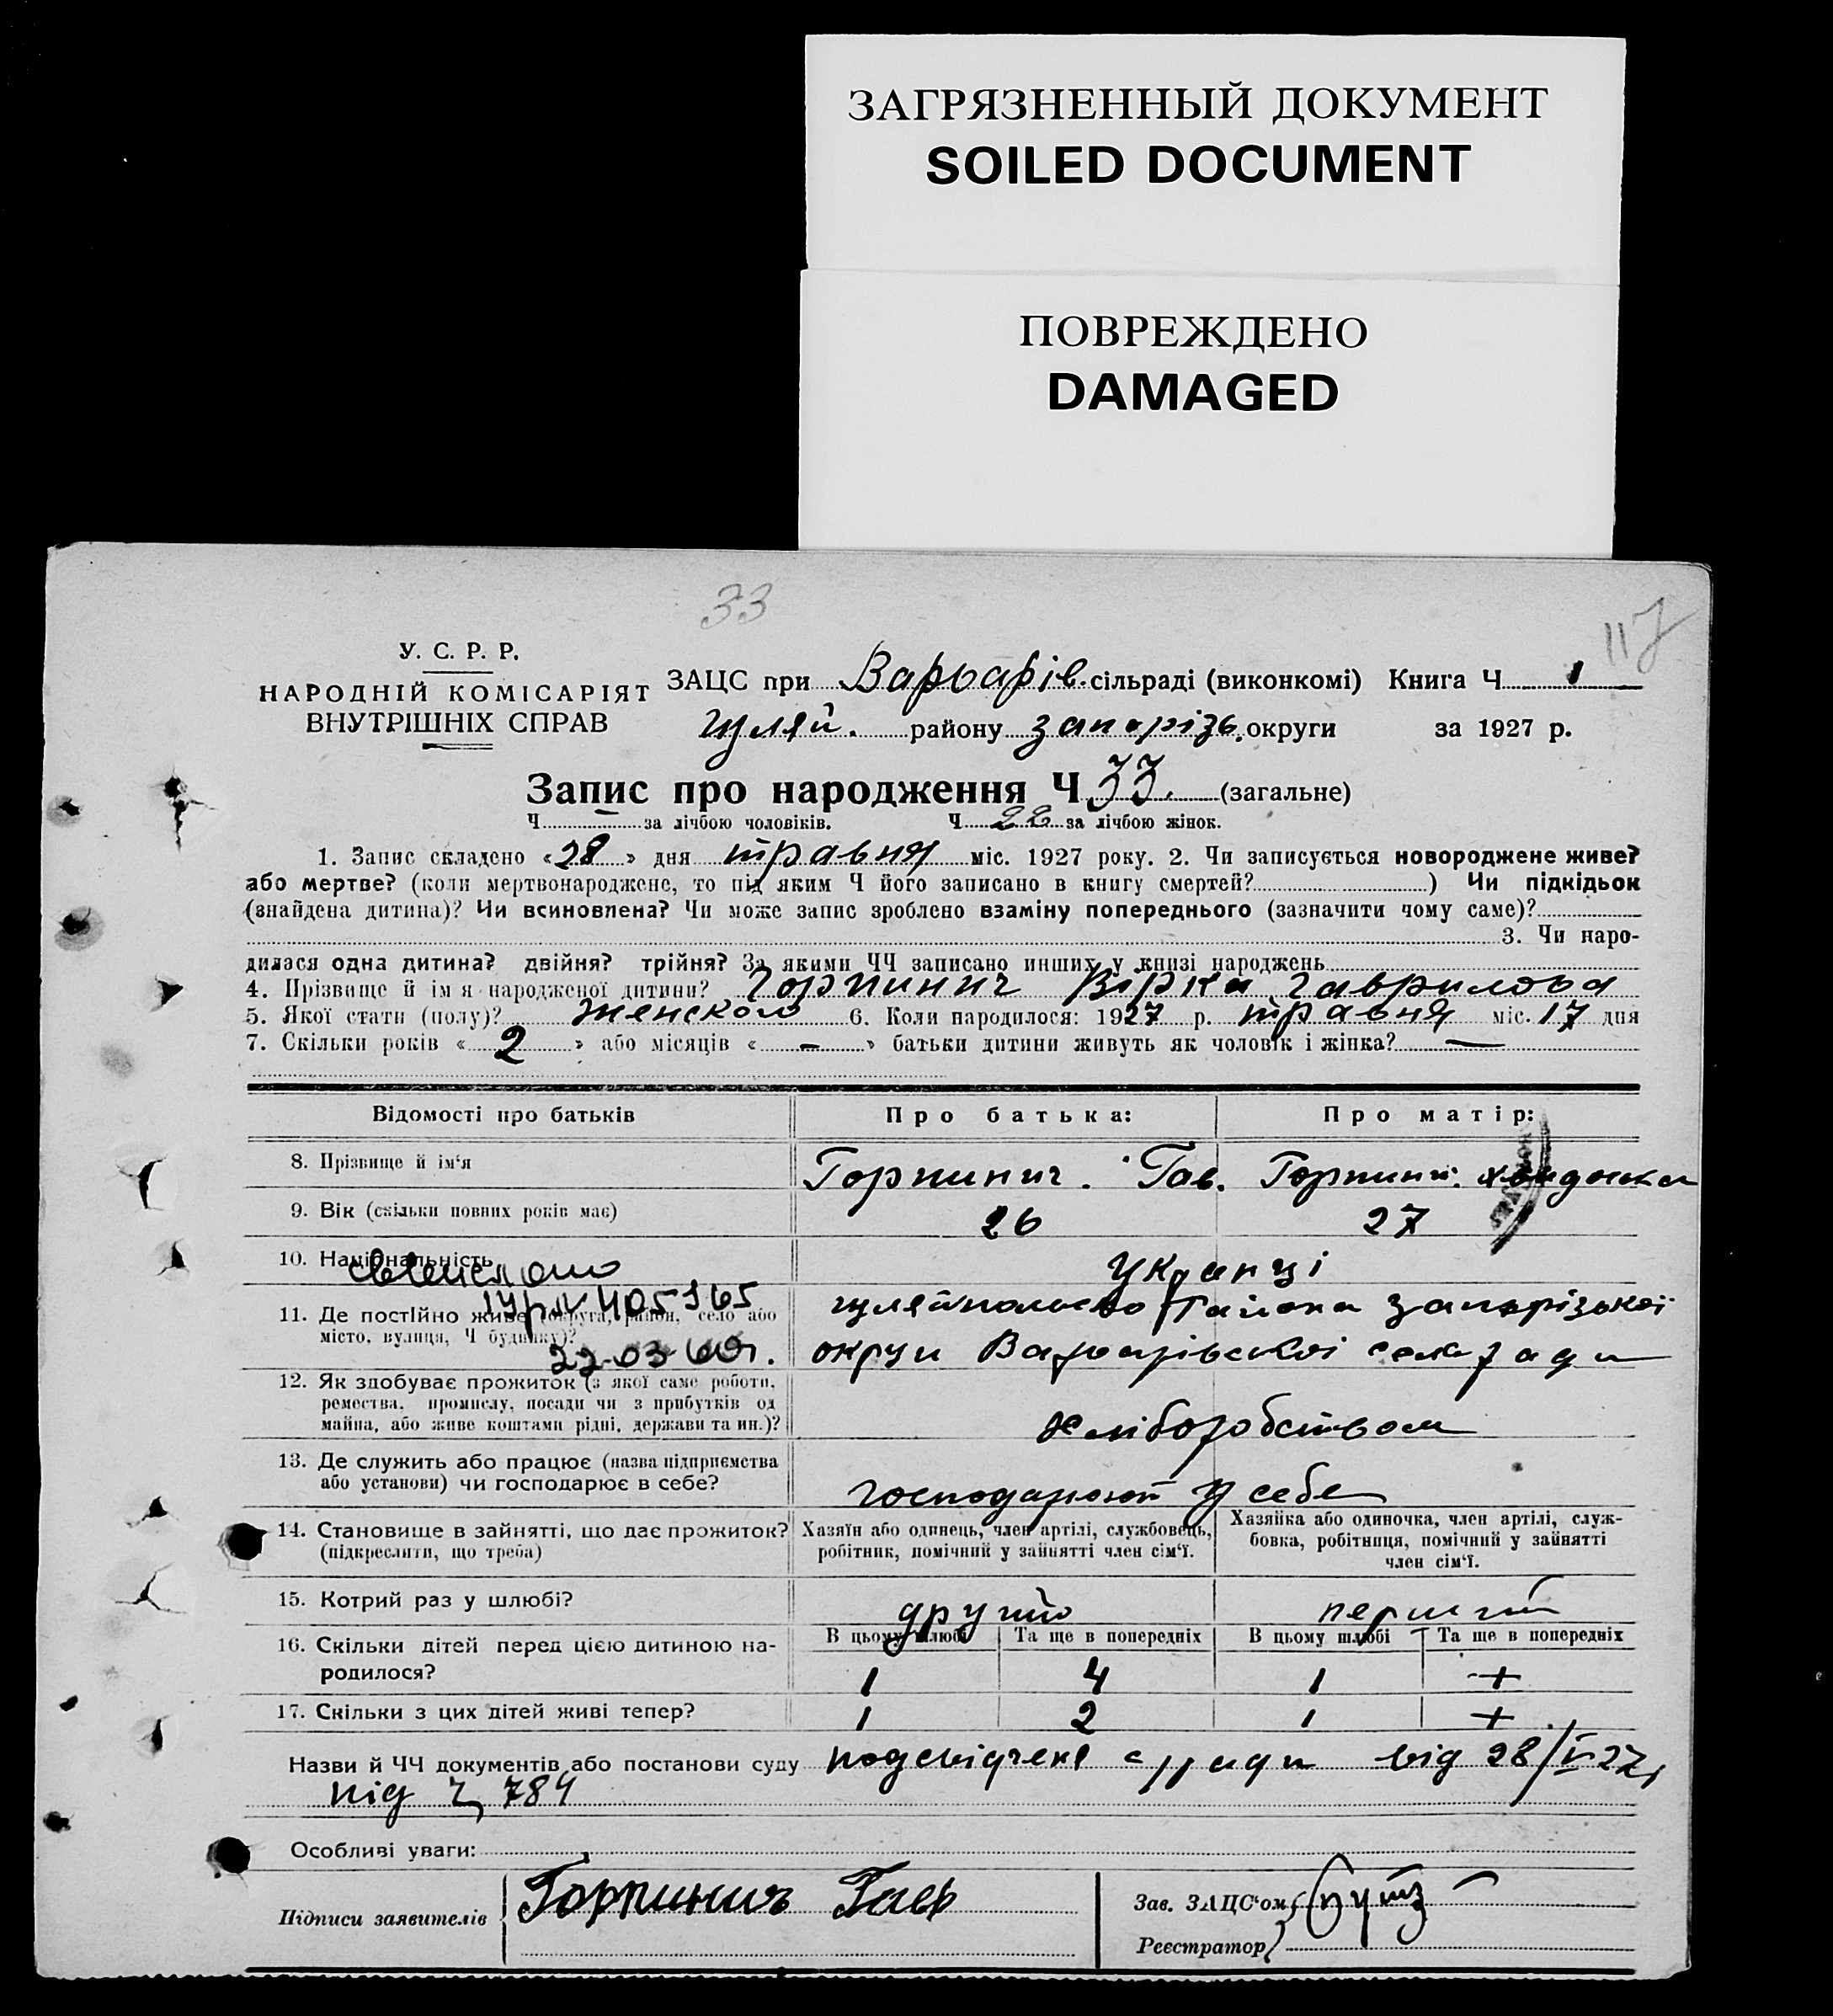 ЗАГРЯЗНЕННЫЙ ДОКУМЕНТ
SOILED DOCUMENT
ПОВРЕЖДЕНО
DAMAGED
33
117
У. С. Р. Р.
НАРОДНІЙ КОМІСАРІЯТ
ВНУТРІШНІХ СПРАВ
ЗАЦС при Варварів. сільраді (виконкомі) Книга Ч 1
Гуляй. району Запоріз. округи за 1927 р.
Запис про народження Ч 33. (загальне)
Ч — за лічбою чоловіків. Ч 22 за лічбою жінок.
1. Запис складено «28» дня травня міс. 1927 року. 2. Чи записується новороджене живе?
або мертве? (коли мертвонароджене, то під яким Ч його записано в книгу смертей? ) Чи підкідьок
(знайдена дитина)? Чи всиновлена? Чи може запис зроблено взаміну попереднього (зазначити чому саме)?
3. Чи наро-
дилася одна дитина? двійня? трійня? За якими ЧЧ записано инших у книзі народжень
4. Прізвище й ім'я народженої дитини? Горпинич Вірка Гаврилова
5. Якої стати (полу)? женского 6. Коли народилося: 1927 р. травня міс. 17 дня
7. Скільки років «2» або місяців «—» батьки дитини живуть як чоловік і жінка? —
Відомості про батьків Про батька: Про матір:
8. Прізвище й ім'я Горпинич. Гав. Горпинич.
9. Вік (скільки повних років має) 26 27
10. Національність Украінці
11. Де постійно живе (округа, район, село або
місто, вулиця, Ч будинку)?
Гуляйпольсько района Запорізькоі
округи Варварівськоі сельради
405165
22-03-60г.
12. Як здобуває прожиток (з якої саме роботи,
ремества, промислу, посади чи з прибутків од
майна, або живе коштами рідні, держави та ин.)?
хліборобством
13. Де служить або працює (назва підприємства
або установи) чи господарює в себе?
господарюют у себе
14. Становище в зайнятті, що дає прожиток?
(підкреслити, що треба)
Хазяїн або одинець, член артілі, службовець,
робітник, помічний у зайнятті член сім'ї.
Хазяйка або одиночка, член артілі, служ-
бовка, робітниця, помічний у зайнятті
член сім'ї.
15. Котрий раз у шлюбі? другий перший
16. Скільки дітей перед цією дитиною на-
родилося?
В цьому шлюбі Та ще в попередніх В цьому шлюбі Та ще в попередніх
1 4 1 +
17. Скільки з цих дітей живі тепер? 1 2 1 +
Назви й ЧЧ документів або постанови суду посвідчене с/ради від 28/V-27,
під ч 784
Особливі уваги:
Підписи заявителів Горпинич Гавр
Зав. ЗАЦС'ом
Реєстратор